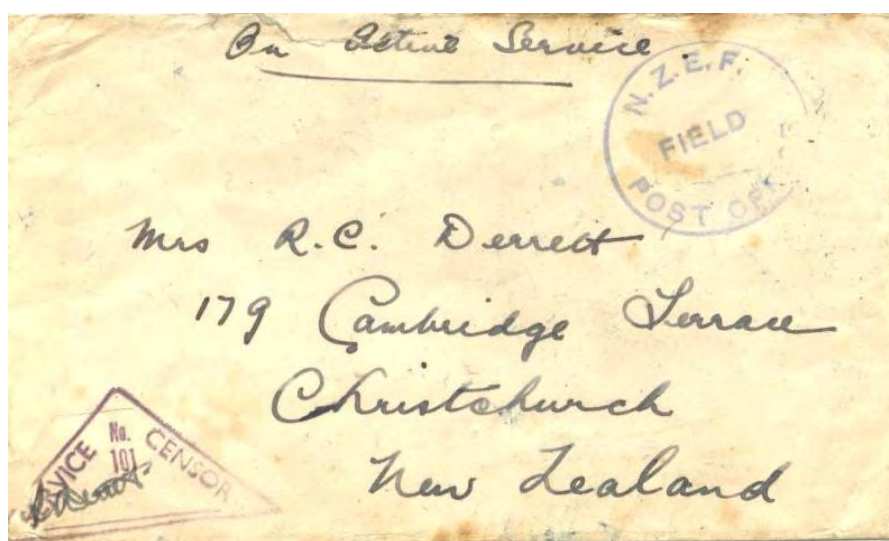 On Active Service
N.Z.E.F.
FIELD
POST OF
Mrs R.C. Derrett
179 Cambridge Terrace
Christchurch
New Zealand
No.
101
SERVICE CENSOR